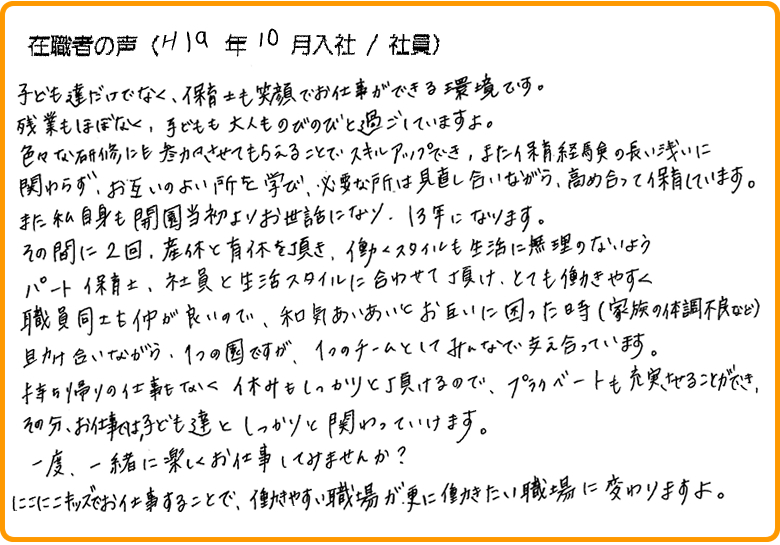 在職者の声（H19 年 10 月入社 / 社員）
子ども達だけでなく、保育士も笑顔でお仕事ができる環境です。
残業もほぼなく、子どもも大人ものびのびと過ごしていますよ。
色々な研修にも参加させてもらえることでスキルアップでき、また保育経験の長い浅いに
関わらず、お互いのよい所を学び、必要な所は見直し合いながら、高め合って保育しています。
また私自身も開園当初よりお世話になり、13年になります。
その間に2回、産休と育休を頂き、働くスタイルも生活に無理のないよう
パート保育士、社員と生活スタイルに合わせて頂け、とても働きやすく
職員同士も仲が良いので、和気あいあいとお互いに困った時(家族の体調不良など)
助け合いながら、1つの園ですが、1つのチームとしてみんなで支え合っています。
持ち帰りの仕事もなく 休みもしっかりと頂けるので、プライベートも充実させることができ、
その分、お仕事では、子ども達としっかりと関わっていけます。
一度、一緒に楽しくお仕事してみませんか?
にこにこキッズでお仕事することで、働きやすい職場が、更に働きたい職場に変わりますよ。